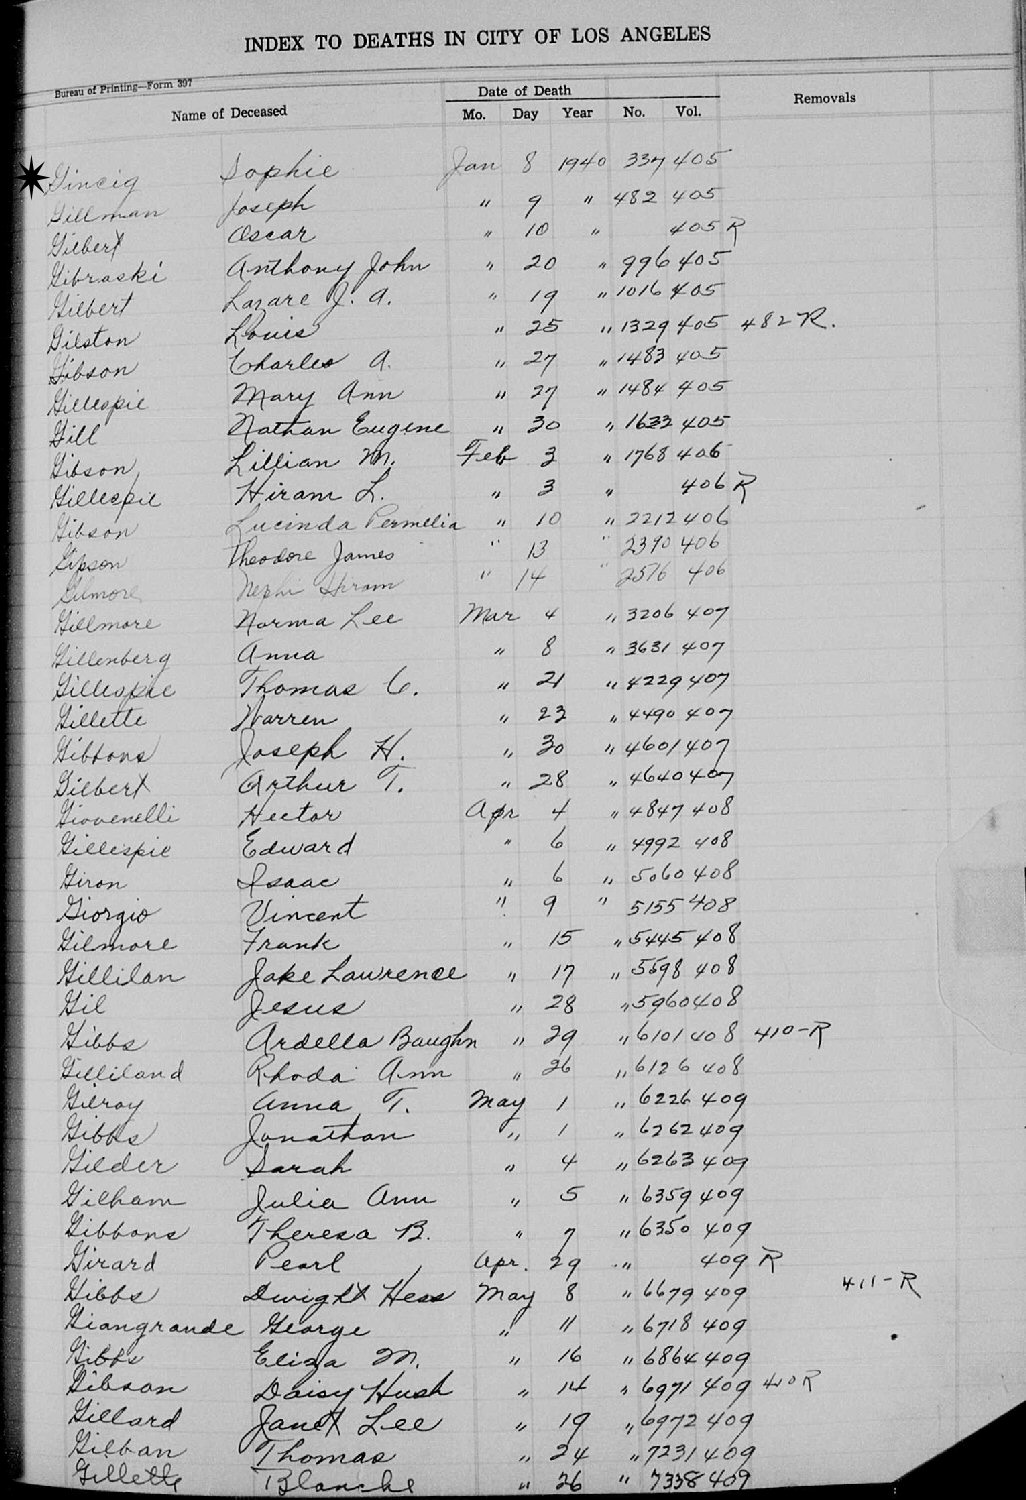 INDEX TO DEATHS IN CITY OF LOS ANGELES
Bureau of Printing—Form 397
Name of Deceased Date of Death Removals
Mo. Day Year No. Vol.
Gincig Sophie Jan 8 1940 337 405
Gillman Joseph " 9 " 482 405
Gilbert Oscar " 10 " 405 R
Gibraski Anthony John " 20 " 996 405
Gilbert Lazare J. A. " 19 " 1016 405
Gilston Louis " 25 " 1329 405 482 R.
Gibson Charles A. " 27 " 1483 405
Gillespie Mary Ann " 27 " 1484 405
Gill Nathan Eugene " 30 " 1632 405
Gibson Lillian M. Feb 3 " 1768 406
Gillespie Hiram L. " 3 " 406 R
Gibson Lucinda Permelia " 10 " 2212 406
Gipson Theodore James " 13 " 2390 406
Gilmore Nephi Hiram " 14 " 2576 406
Gillmore Norma Lee Mar 4 " 3206 407
Gillenberg Anna " 8 " 3631 407
Gillespie Thomas C. " 21 " 4229 407
Gillette Warren " 23 " 4490 407
Gibbons Joseph H. " 30 " 4601 407
Gilbert Arthur T. " 28 " 4640 407
Giovenelli Hector Apr 4 " 4847 408
Gillespie Edward " 6 " 4992 408
Giron Isaac " 6 " 5060 408
Giorgio Vincent " 9 " 5155 408
Gilmore Frank " 15 " 5445 408
Gillilan Jake Lawrence " 17 " 5698 408
Gil Jesus " 28 " 5960 408
Gibbs Ardella Baughn " 29 " 6101 408 410-R
Gilliland Rhoda Ann " 26 " 6126 408
Gilroy Anna T. May 1 " 6226 409
Gibbs Jonathan " 1 " 6262 409
Gilder Sarah " 4 " 6263 409
Gilham Julia Ann " 5 " 6359 409
Gibbons Theresa B. " 7 " 6350 409
Girard Pearl Apr. 29 " 409 R
Gibbs Dwight Hess May 8 " 6679 409 411-R
Giangrande George " 11 " 6718 409
Gibbs Eliza M. " 16 " 6864 409
Gibson Daisy Hush " 14 " 6971 409 410R
Gillard Janet Lee " 19 " 6972 409
Gilban Thomas " 24 " 7231 409
Gillette Blanche " 26 " 7338 409